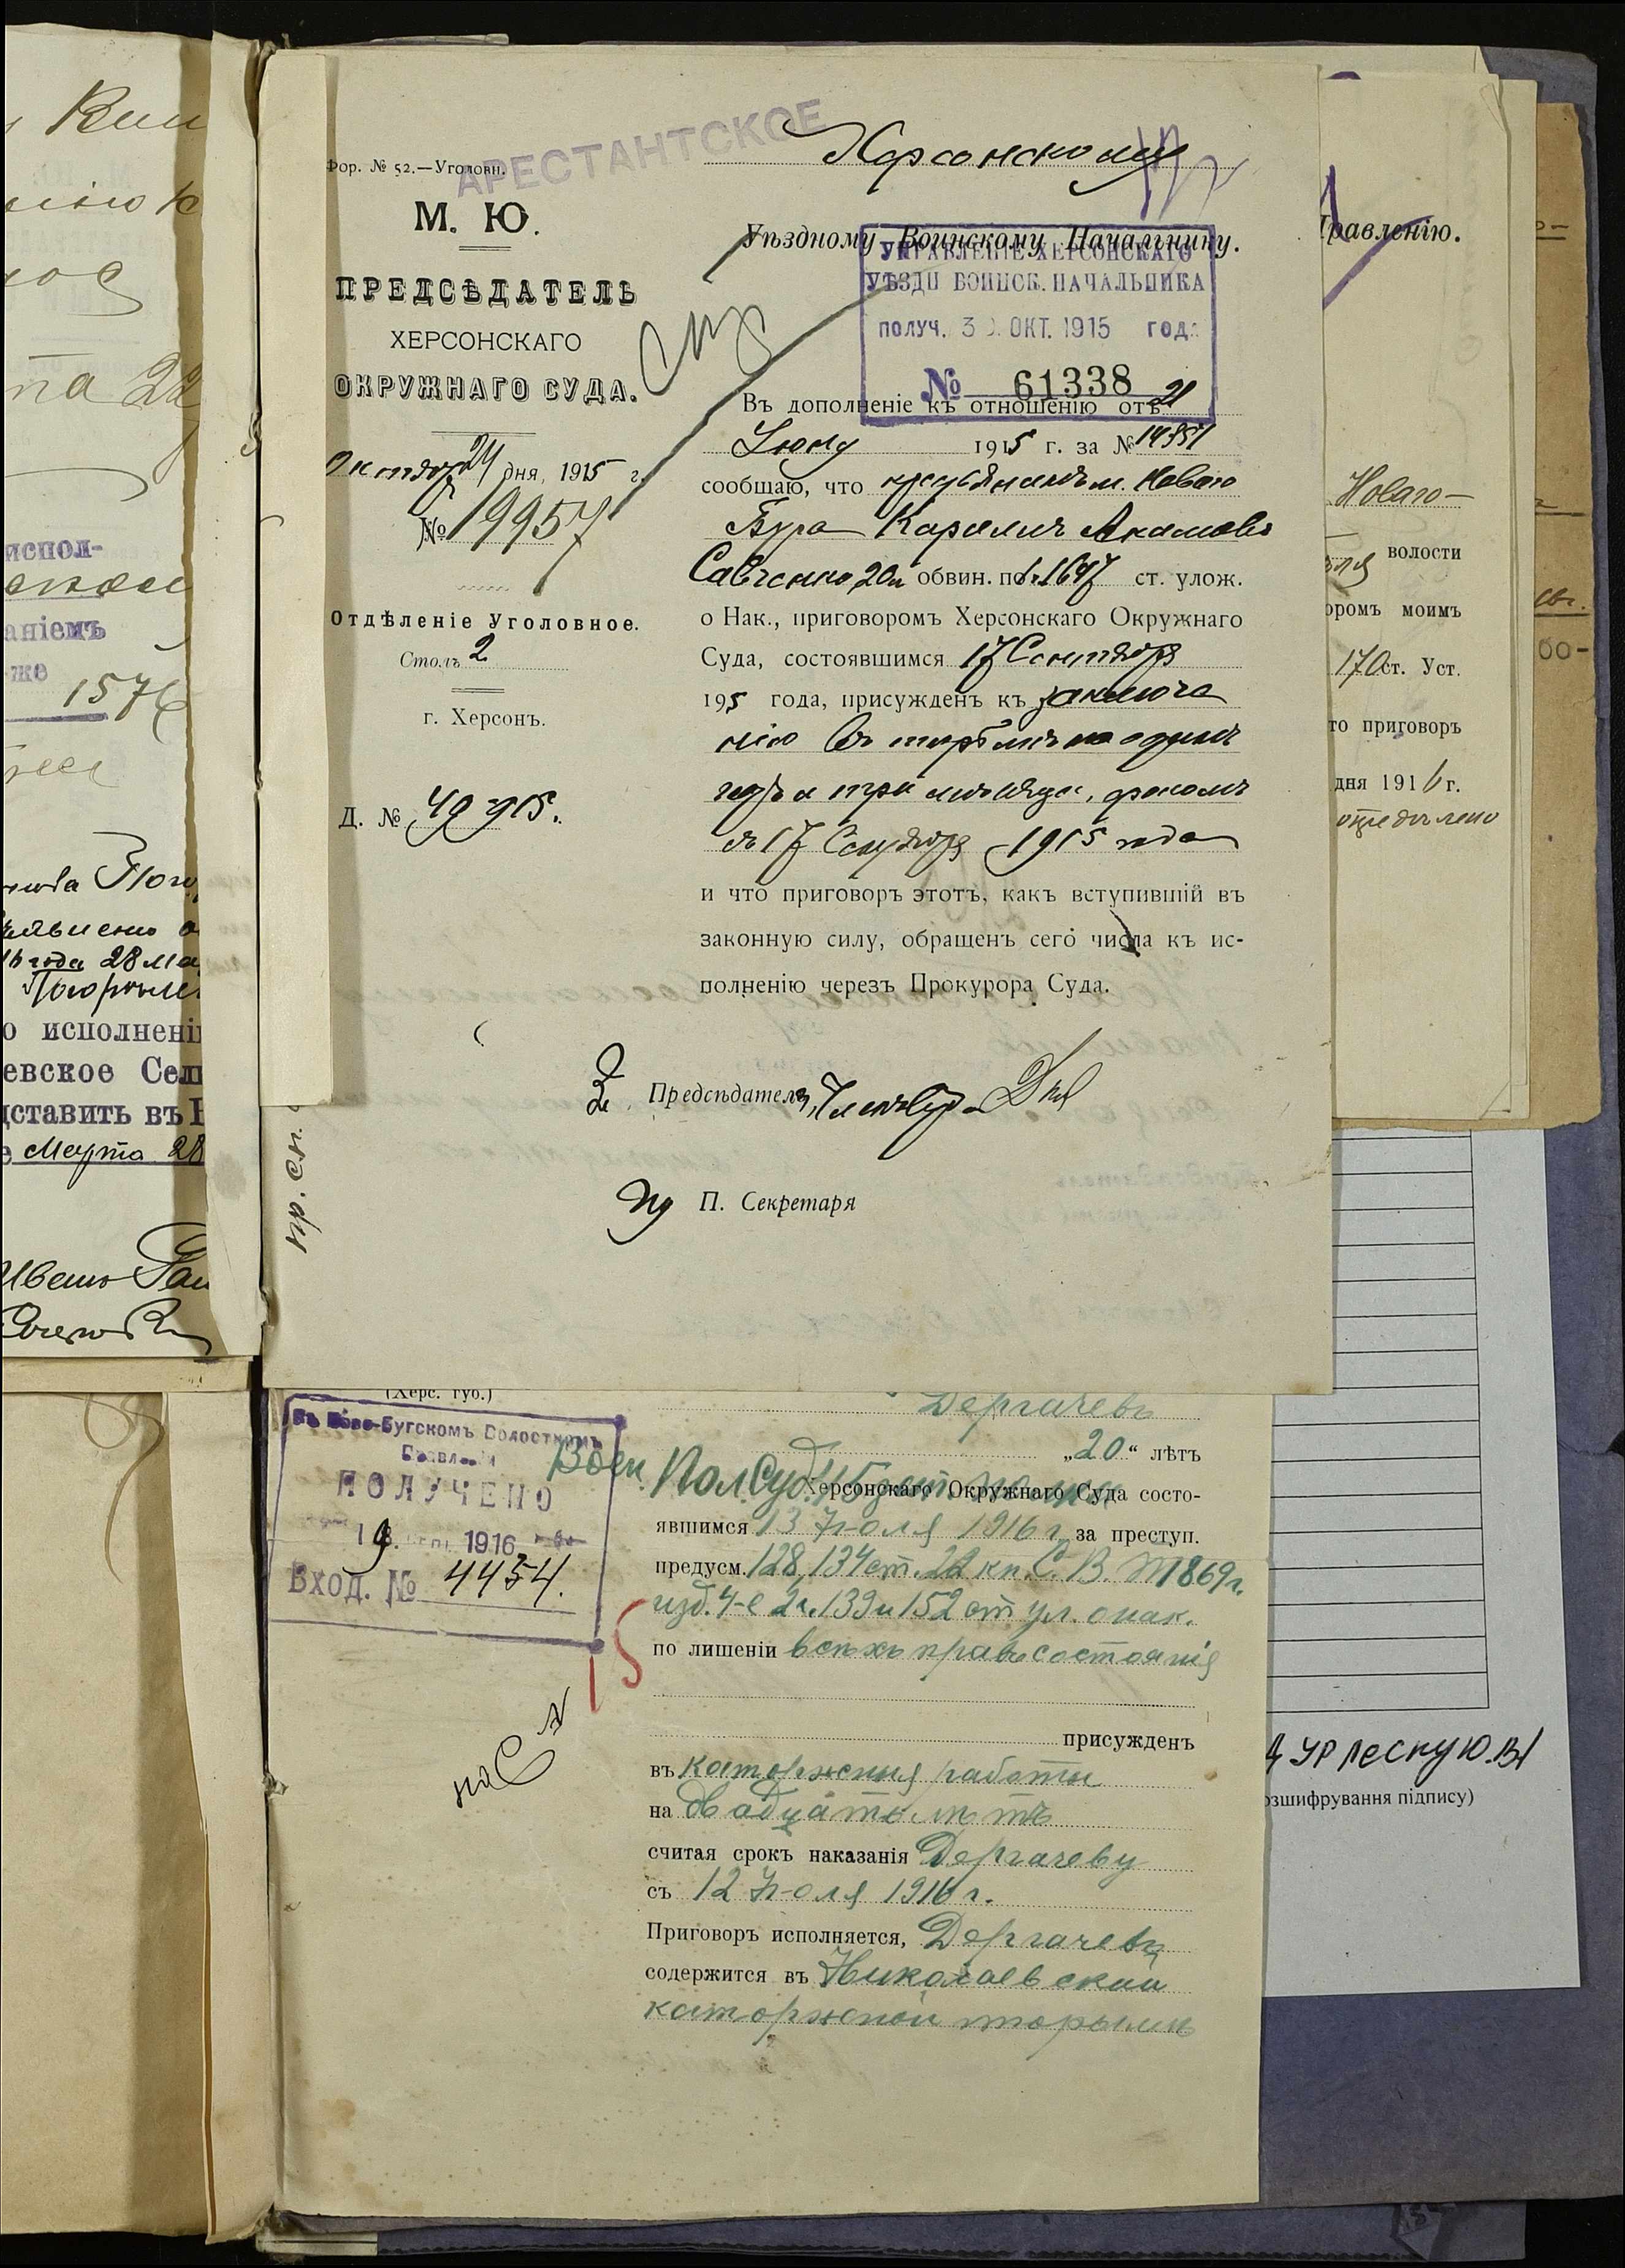 Кии
та 22
испол-
аніемъ
же
1576
о исполнені
евское Сел
дставить въ
Марта 28
Иванъ
пр. сп.
АРЕСТАНТСКОЕ
Фор. № 52.—Уголовн.
М. Ю.
ПРЕДСѢДАТЕЛЬ
ХЕРСОНСКАГО
ОКРУЖНАГО СУДА.
Октября 24 дня, 1915 г.
№ 19957
Отдѣленіе Уголовное.
Столъ 2
г. Херсонъ.
Д. № 49 915.
Херсонскому
Уѣздному Воинскому Начальнику.
УПРАВЛЕНІЕ ХЕРСОНСКАГО
УѢЗДН ВОИНСК. НАЧАЛЬНИКА
ПОЛУЧ. 30. ОКТ. 1915 ГОДА
№ 61338
Въ дополненіе къ отношенію отъ 21
Іюня 1915 г. за № 14351
сообщаю, что крестьянинъ м. Новаго
Буга
Савченко, 20 л обвин. по 1 ч. 1647 ст. улож.
о Нак., приговоромъ Херсонскаго Окружнаго
Суда, состоявшимся 17 Сентября
195 года, присужденъ къ заключе
нію въ тюрьмѣ на одинъ
годъ и три мѣсяца, срокомъ
съ 17 Сентября 1915 года
и что приговоръ этотъ, какъ вступившій въ
законную силу, обращенъ сего числа къ ис-
полненію черезъ Прокурора Суда.
За Предсѣдателя, Членъ Суда
П. Секретаря
Правленію.
Новаго-
волости
оромъ моимъ
170 ст. Уст.
то приговоръ
дня 1916 г.
опредѣлено
(Херс. губ.)
Въ Ново-Бугскомъ Волостномъ
Правленіи
ПОЛУЧЕНО
19. 1916
Вход. № 4454.
15
Дергачевъ
„20“ лѣтъ
Воен. Пол. Суд.
Херсонскаго Окружнаго Суда состо-
явшимся 13 Іюля 1916 г. за преступ.
предусм. 128, 134 ст. 22 кн. С. В. П 1869 г.
изд. 4-е 2 ч. 139 и 152 ст ул. о нак.
по лишеніи всѣхъ правъ состоянія
присужденъ
въ каторжныя работы
на двадцать лѣтъ
считая срокъ наказанія Дергачеву
съ 12 Іюля 1916 г.
Приговоръ исполняется, Дергачевъ
содержится въ Николаевской
каторжной тюрьмѣ
озшифрування підпису)